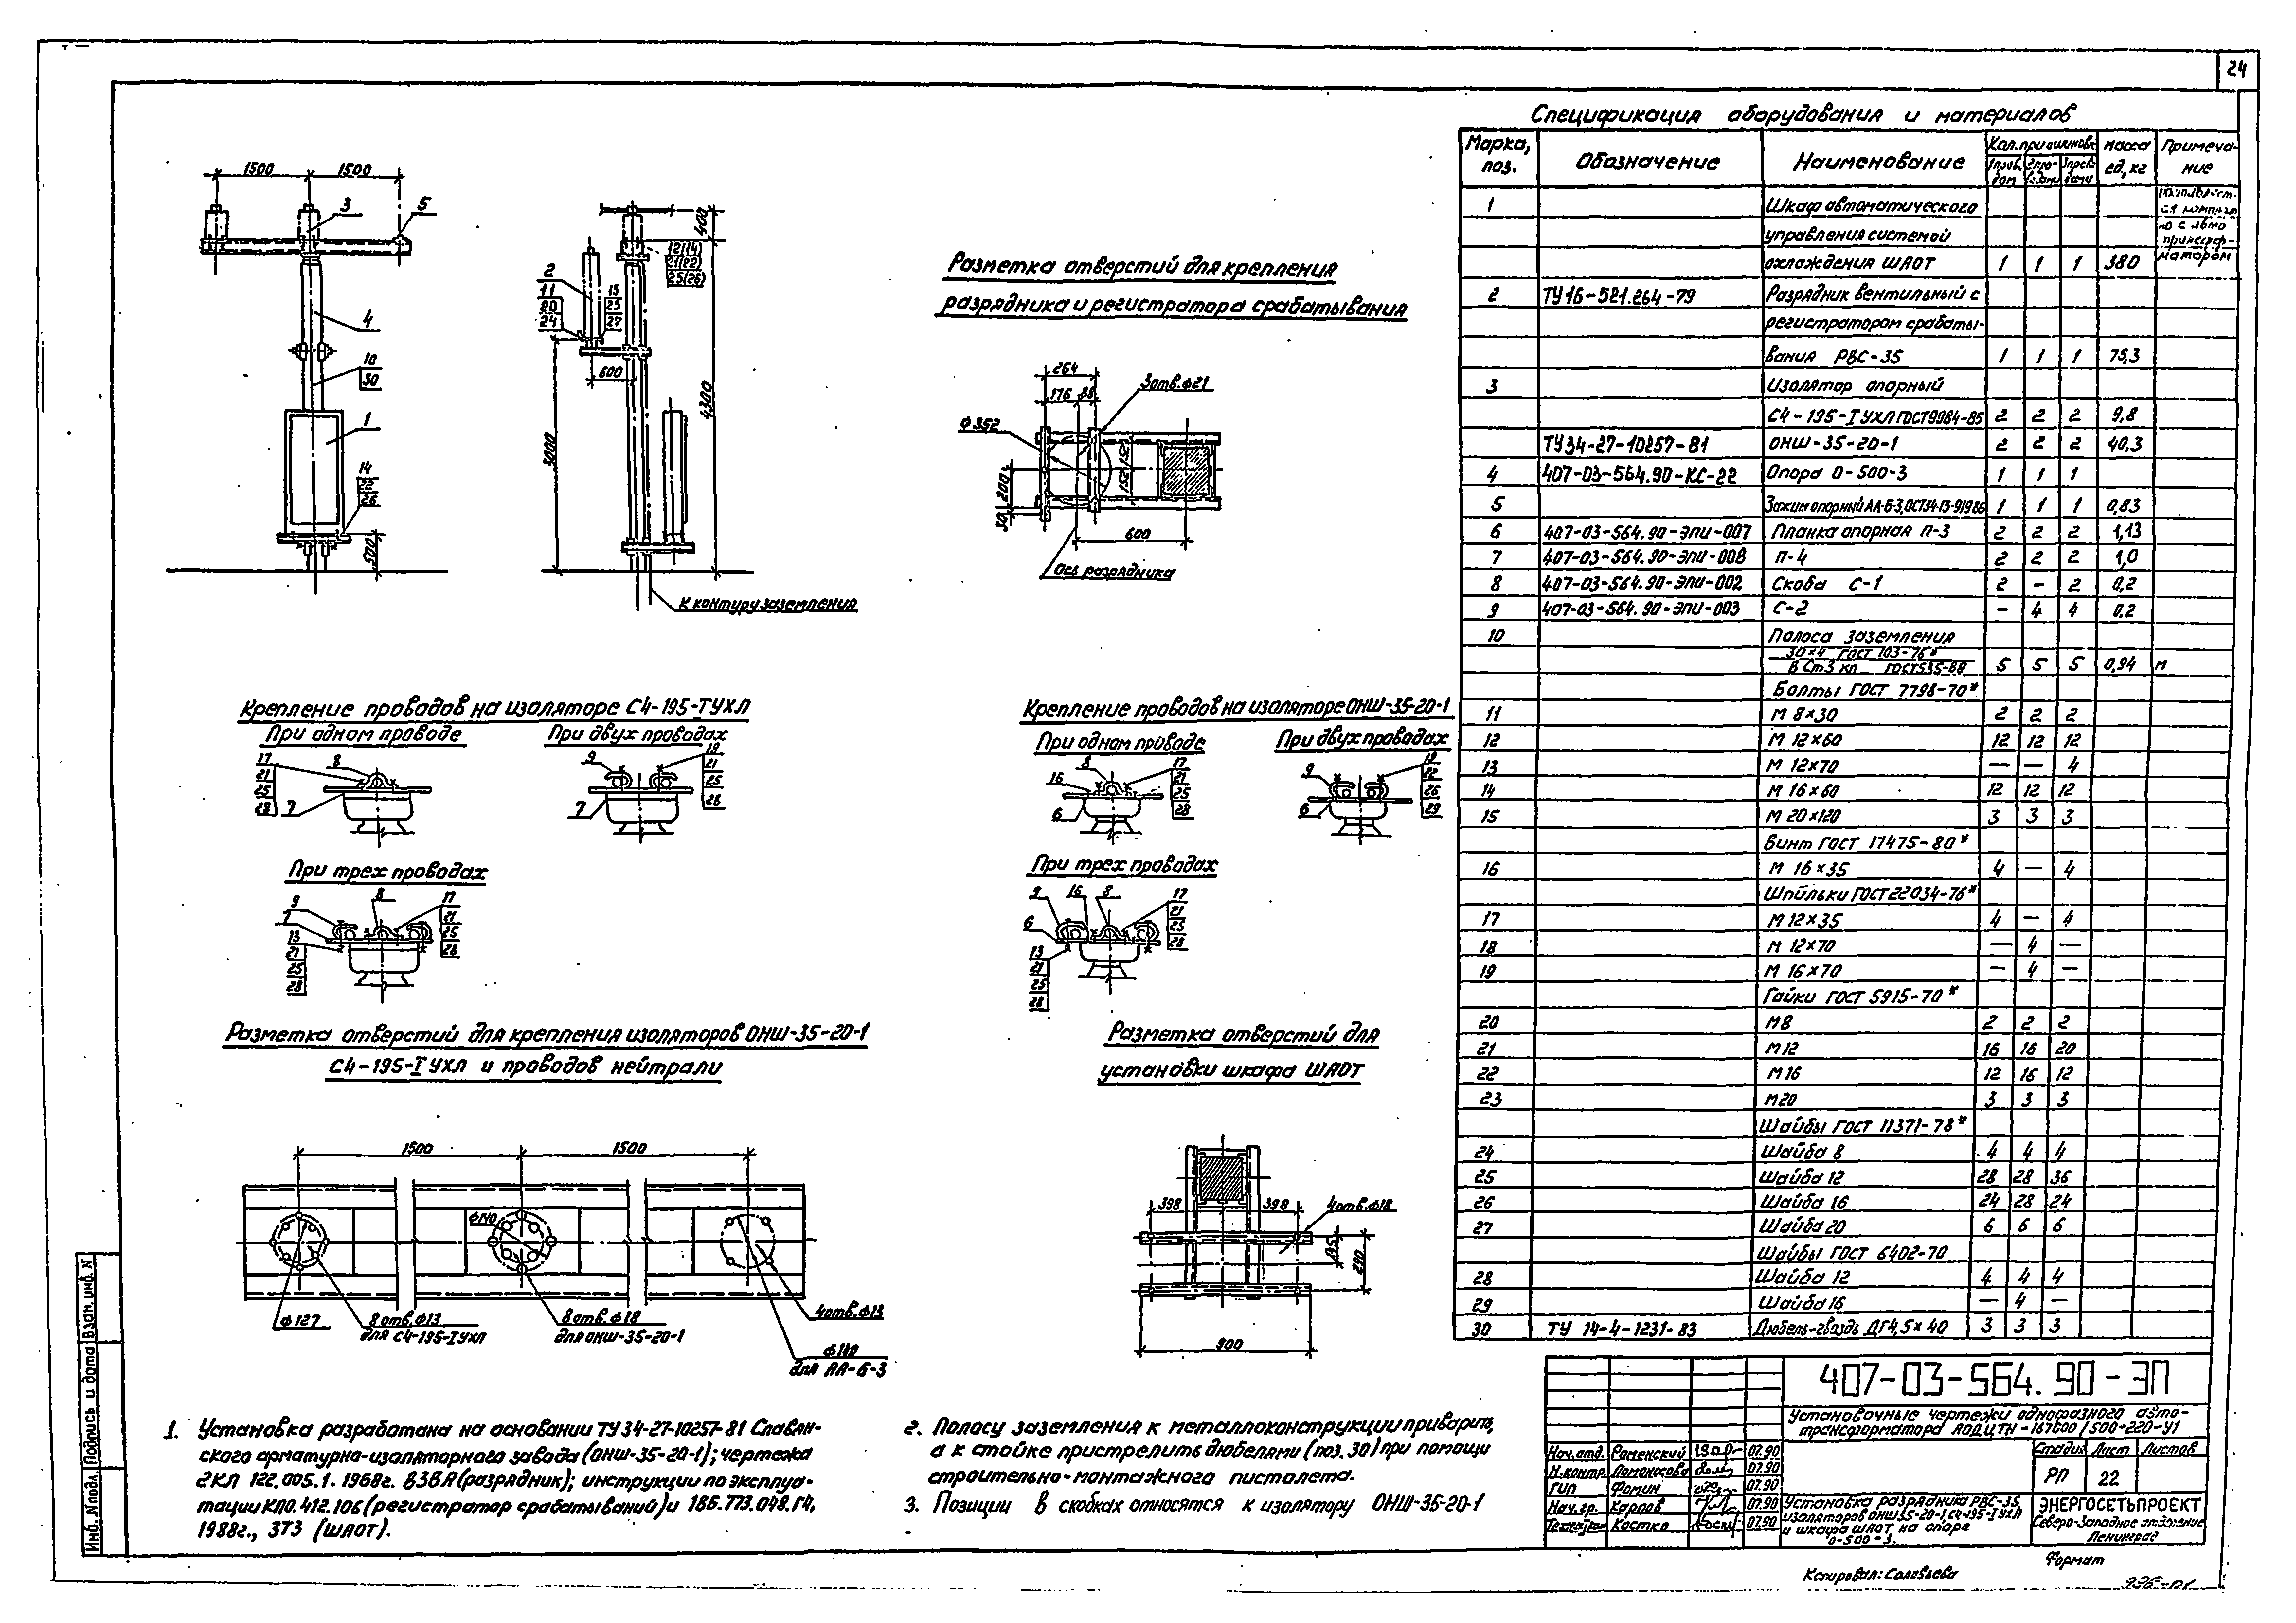 24
Спецификация оборудования и материалов
Марка, поз. Обозначение Наименование Кол. при ошиновке масса ед., кг Примеча-ние
1 Шкаф автоматического
управления системой
охлаждения ШАОТ 1 1 1 380
2 ТУ16-521.264-79 Разрядник вентильный с
регистратором срабаты-
вания РВС-35 1 1 1 75,3
3 Изолятор опорный
С4-195-I УХЛ ГОСТ9984-85 2 2 2 9,8
ТУ34-27-10257-81 ОНШ-35-20-1 2 2 2 40,3
4 407-03-564.90-КС-22 Опора О-500-3 1 1 1
5 Зажим опорный АА-6-3, 1 1 1 0,83
6 407-03-564.90-ЭПИ-007 Планка опорная П-3 2 2 2 1,13
7 407-03-564.90-ЭПИ-008 П-4 2 2 2 1,0
8 407-03-564.90-ЭПИ-002 Скоба С-1 2 - 2 0,2
9 407-03-564.90-ЭПИ-003 С-2 - 4 4 0,2
10 Полоса заземления
30×4 ГОСТ 103-76*
В Ст3 кп ГОСТ535-88 5 5 5 0,94 м
Болты ГОСТ 7798-70*
11 М 8×30 2 2 2
12 М 12×60 12 12 12
13 М 12×70 — — 4
14 М 16×60 12 12 12
15 М 20×120 3 3 3
Винт ГОСТ 17475-80*
16 М 16×35 4 — 4
Шпильки ГОСТ22034-76*
17 М 12×35 4 — 4
18 М 12×70 — 4 —
19 М 16×70 — 4 —
Гайки ГОСТ 5915-70*
20 М8 2 2 2
21 М12 16 16 20
22 М16 12 16 12
23 М20 3 3 3
Шайбы ГОСТ 11371-78*
24 Шайба 8 4 4 4
25 Шайба 12 28 28 36
26 Шайба 16 24 28 24
27 Шайба 20 6 6 6
Шайбы ГОСТ 6402-70
28 Шайба 12 4 4 4
29 Шайба 16 — 4 —
30 ТУ 14-4-1231-83 Дюбель-гвоздь ДГ4,5×40 3 3 3
1500 1500
3 5
4
10
30
1
14
22
26
500
400
12(14)
21(22)
25(26)
2
11
20
24
15
23
27
600
3000
4300
К контуру заземления
Разметка отверстий для крепления
разрядника и регистратора срабатывания
264
176 88
3отв.ф21
ф352
152 152
200
30
600
Ось разрядника
Крепление проводов на изоляторе С4-195-IУХЛ
При одном проводе
17
21
25
28
8
7
При двух проводах
9
18
21
25
26
7
При трех проводах
9
8
17
7
21
25
28
13
21
25
28
Крепление проводов на изоляторе ОНШ-35-20-1
При одном проводе
8
17
16
21
25
28
6
При двух проводах
9
19
22
26
29
6
При трех проводах
9 16 8 17
21
25
28
6
13
21
25
28
Разметка отверстий для крепления изоляторов ОНШ-35-20-1
С4-195-I УХЛ и проводов нейтрали
1500 1500
ф140
ф127
8отв.ф13
для С4-195-IУХЛ
8отв.ф18
для ОНШ-35-20-1
4отв.ф13
ф140
для АА-6-3
Разметка отверстий для
установки шкафа ШАОТ
398 398
4отв.ф18
145
290
900
1. Установка разработана на основании ТУ 34-27-10257-81 Славян-
ского арматурно-изоляторного завода (ОНШ-35-20-1); чертежа
2КЛ 122.005.1. 1968г. ВЗВА (разрядник); инструкции по эксплуа-
тации КПО.412.106 (регистратор срабатываний) и 1ВБ.773.048.Г4,
1988г., ЗТЗ (ШАОТ).
2. Полосу заземления к металлоконструкции приварить,
а к стойке пристрелить дюбелями (поз. 30) при помощи
строительно-монтажного пистолета.
3. Позиции в скобках относятся к изолятору ОНШ-35-20-1
407-03-564.90-ЭП
Установочные чертежи однофазного авто-
трансформатора АОДЦТН-167000/500-220-У1
Стадия Лист Листов
РП 22
Нач.отд. Роменский 07.90
Н.контр. Ломоносова 07.90
ГИП Фомин 07.90
Нач.гр. Карпов 07.90
Техник Костко 07.90
Установка разрядника РВС-35,
изоляторов ОНШ35-20-1, С4-195-I УХЛ
и шкафа ШАОТ на опоре
О-500-3.
ЭНЕРГОСЕТЬПРОЕКТ
Северо-Западное отделение
Ленинград
Копировал: Соловьева
Формат
Инв. N подл. Подпись и дата Взам. инв. N